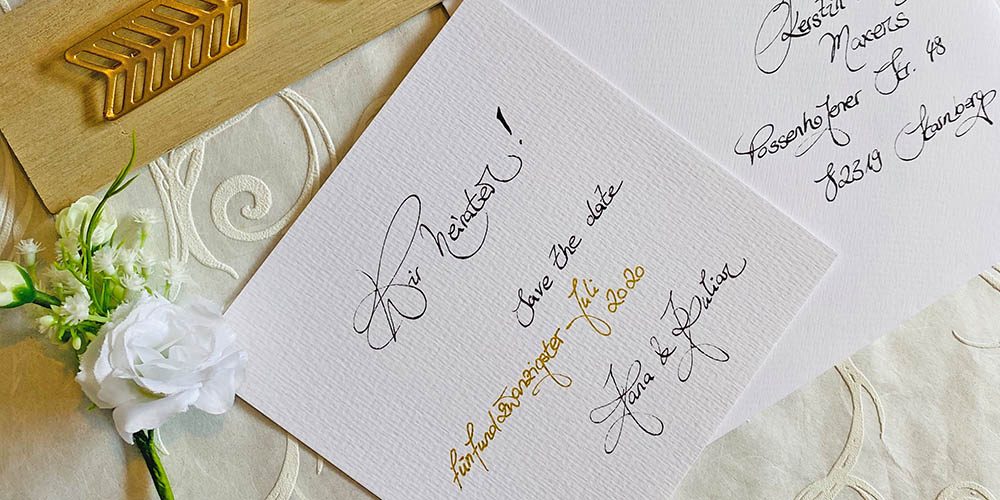 Wir heiraten!
save the date
fünfundzwanzigster Juli
2020
Jana & Julian
Kerstin
Maxens
Possenhofener Str. 48
82319 Starnberg